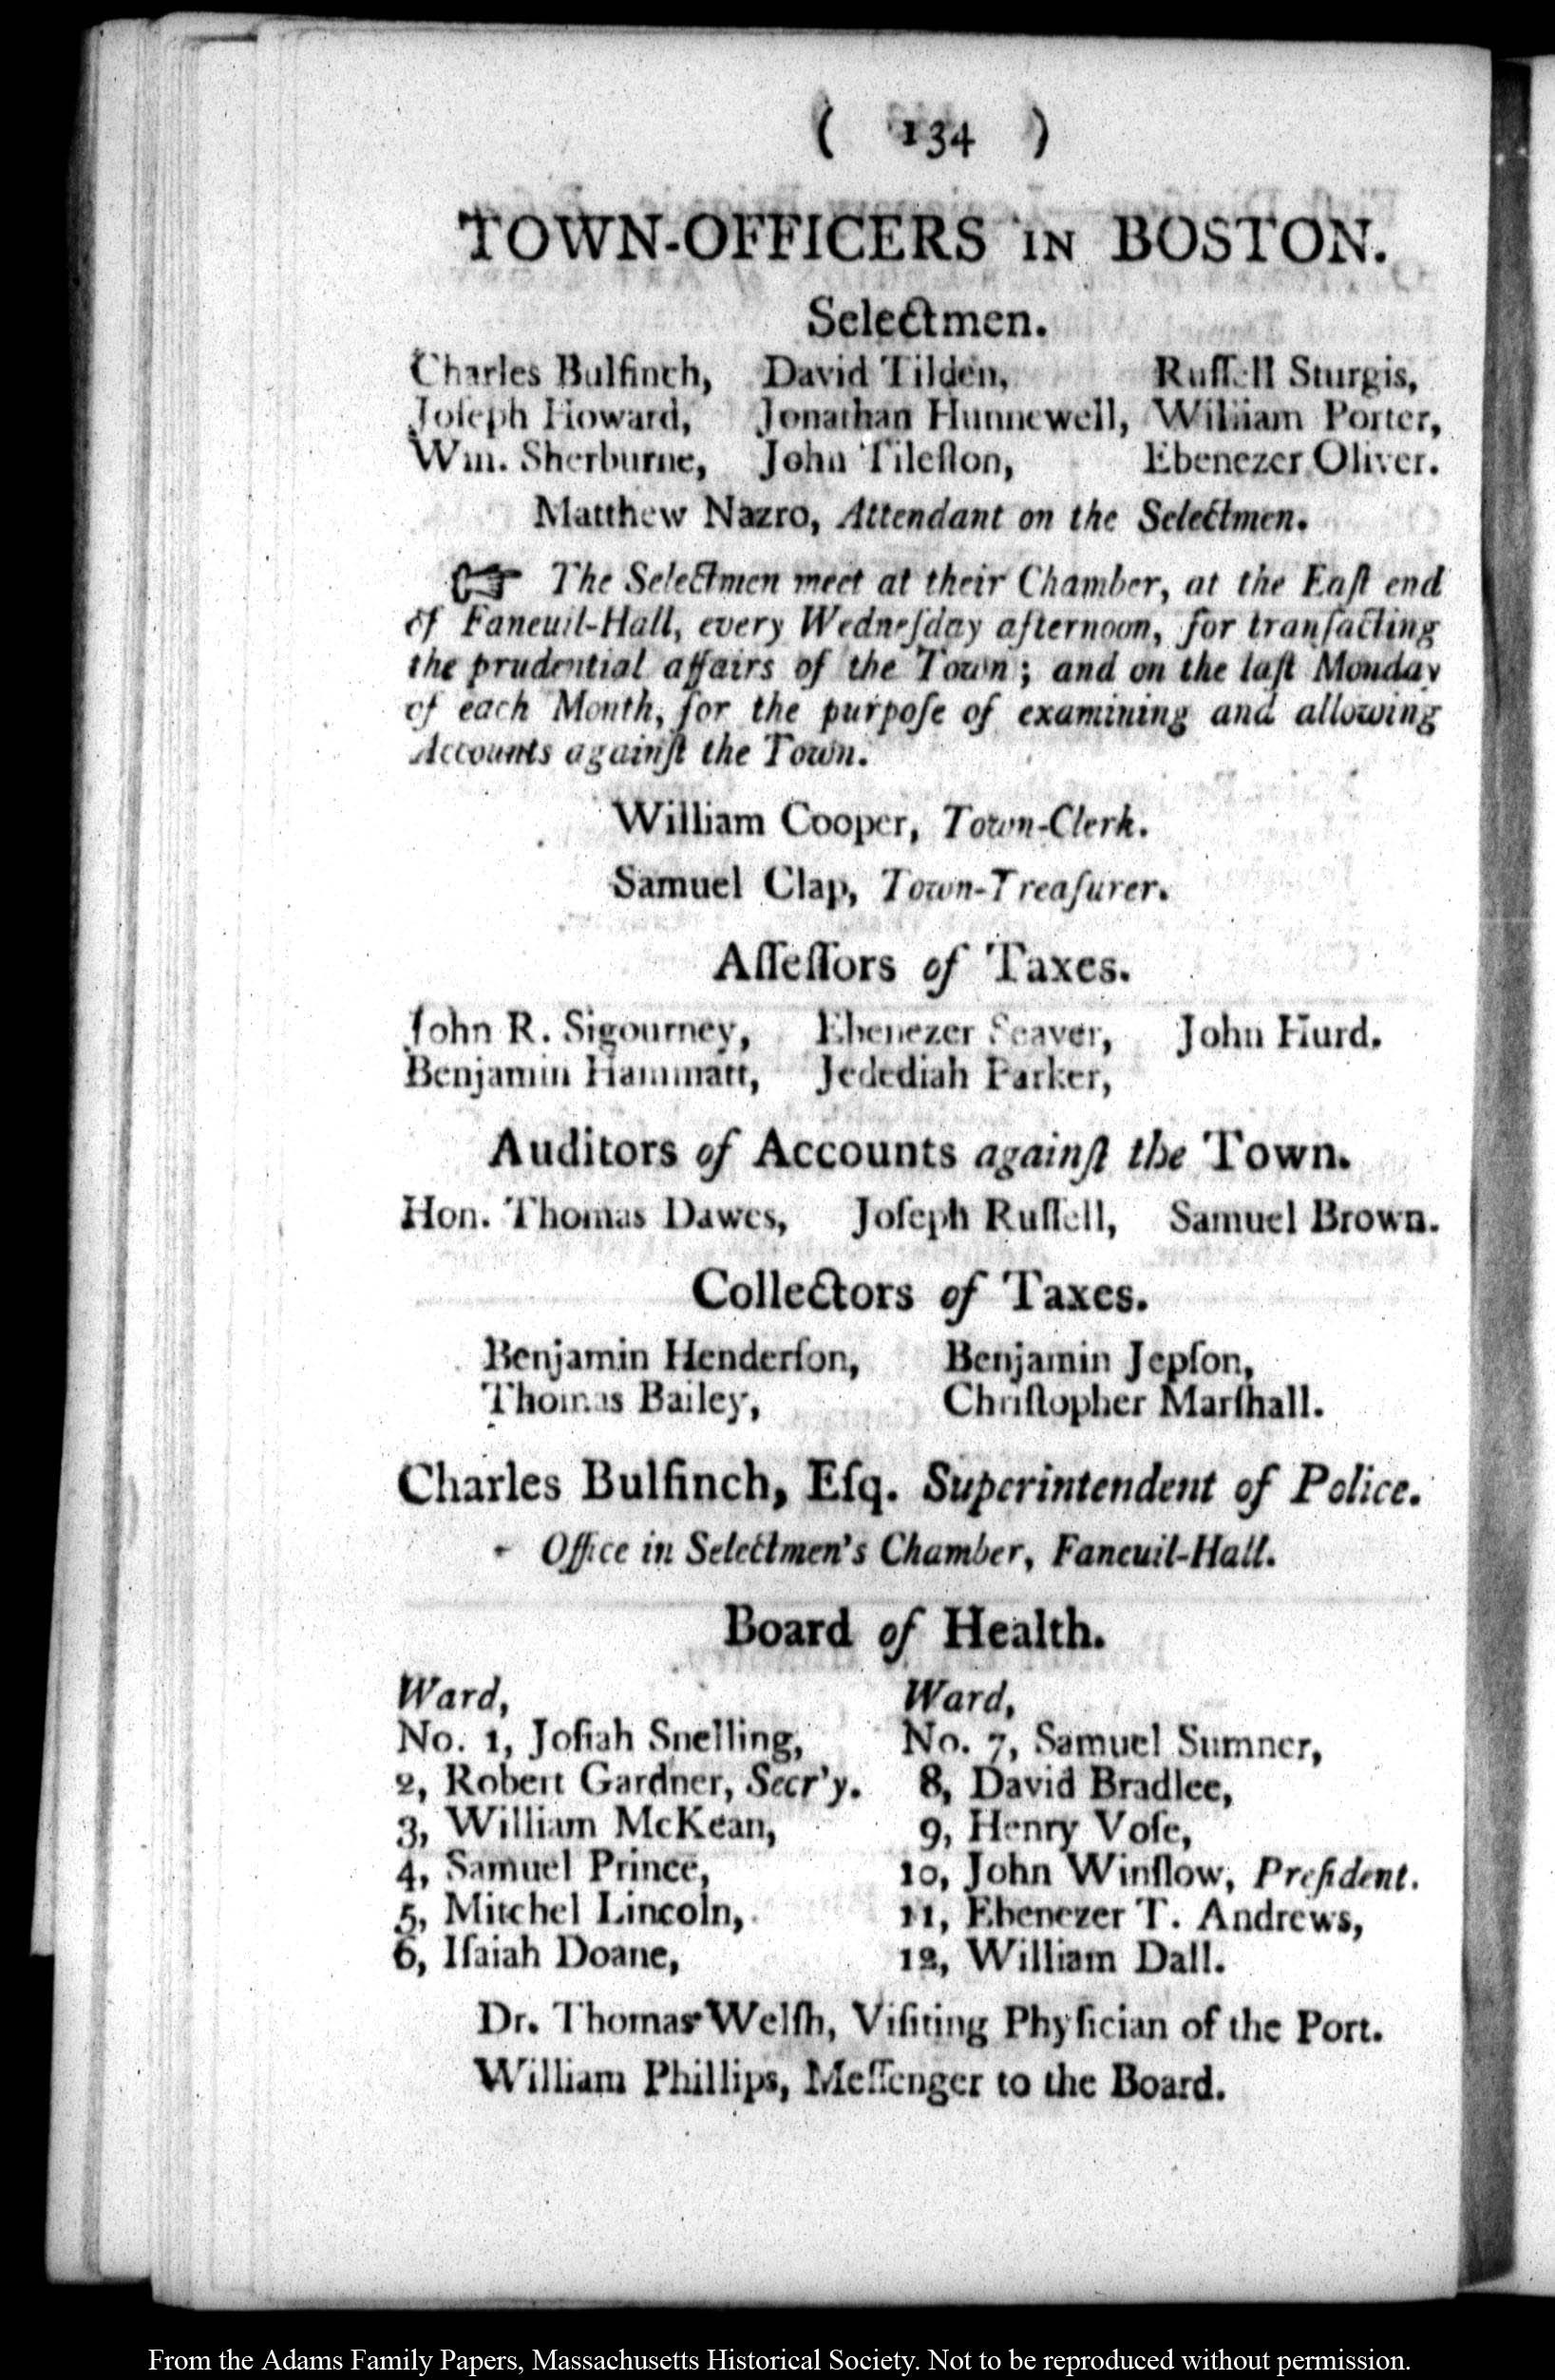 ( 134 )
TOWN-OFFICERS IN BOSTON.
Selectmen.
Charles Bulfinch, David Tilden, Ruſſell Sturgis,
Joſeph Howard, Jonathan Hunnewell, William Porter,
Wm. Sherburne, John Tileſton, Ebenezer Oliver.
Matthew Nazro, Attendant on the Selectmen.
☞ The Selectmen meet at their Chamber, at the Eaſt end
of Faneuil-Hall, every Wedneſday afternoon, for tranſacting
the prudential affairs of the Town; and on the laſt Monday
of each Month, for the purpoſe of examining and allowing
Accounts againſt the Town.
William Cooper, Town-Clerk.
Samuel Clap, Town-Treaſurer.
Aſſeſſors of Taxes.
John R. Sigourney, Ebenezer Seaver, John Hurd.
Benjamin Hammatt, Jedediah Parker,
Auditors of Accounts againſt the Town.
Hon. Thomas Dawes, Joſeph Ruſſell, Samuel Brown.
Collectors of Taxes.
Benjamin Henderſon, Benjamin Jepſon,
Thomas Bailey, Chriſtopher Marſhall.
Charles Bulfinch, Eſq. Superintendent of Police.
Office in Selectmen's Chamber, Faneuil-Hall.
Board of Health.
Ward, Ward,
No. 1, Joſiah Snelling, No. 7, Samuel Sumner,
2, Robert Gardner, Secr'y. 8, David Bradlee,
3, William McKean, 9, Henry Voſe,
4, Samuel Prince, 10, John Winſlow, Preſident.
5, Mitchel Lincoln, 11, Ebenezer T. Andrews,
6, Iſaiah Doane, 12, William Dall.
Dr. Thomas Welſh, Viſiting Phyſician of the Port.
William Phillips, Meſſenger to the Board.
From the Adams Family Papers, Massachusetts Historical Society. Not to be reproduced without permission.